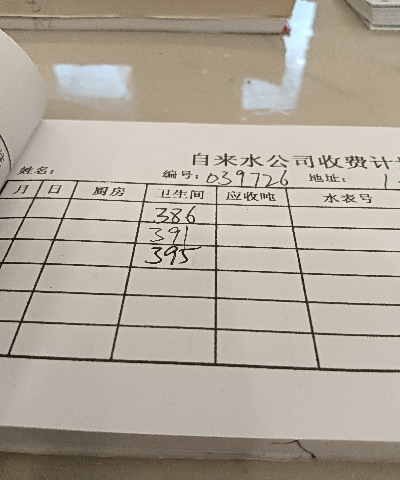 自来水公司收费计
姓名: 编号: 039726 地址: 1
月 日 厨房 卫生间 应收吨 水表号
386
391
395